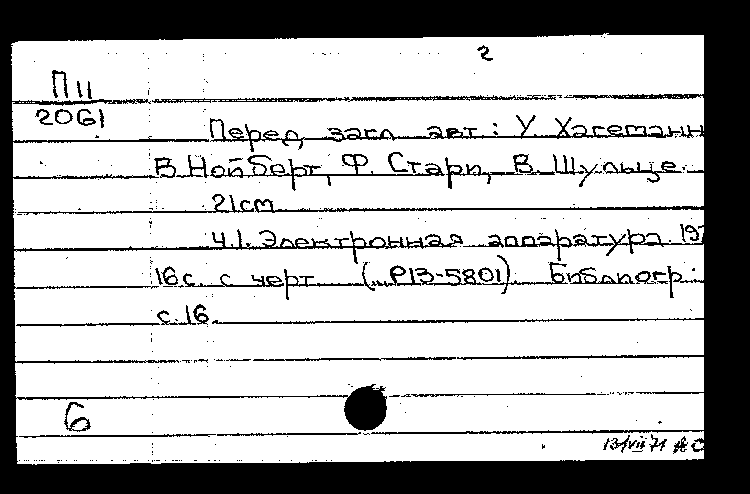 2
П 11
2061
Перед загл. авт.: У. Хагеманн
В. Нойберт, Ф. Старк, В. Шульце.
21см
Ч.1. Электронная аппаратура. 197
16с. с черт. (... Р13-5801). Библиогр.:
с.16.
6
13/VII 71